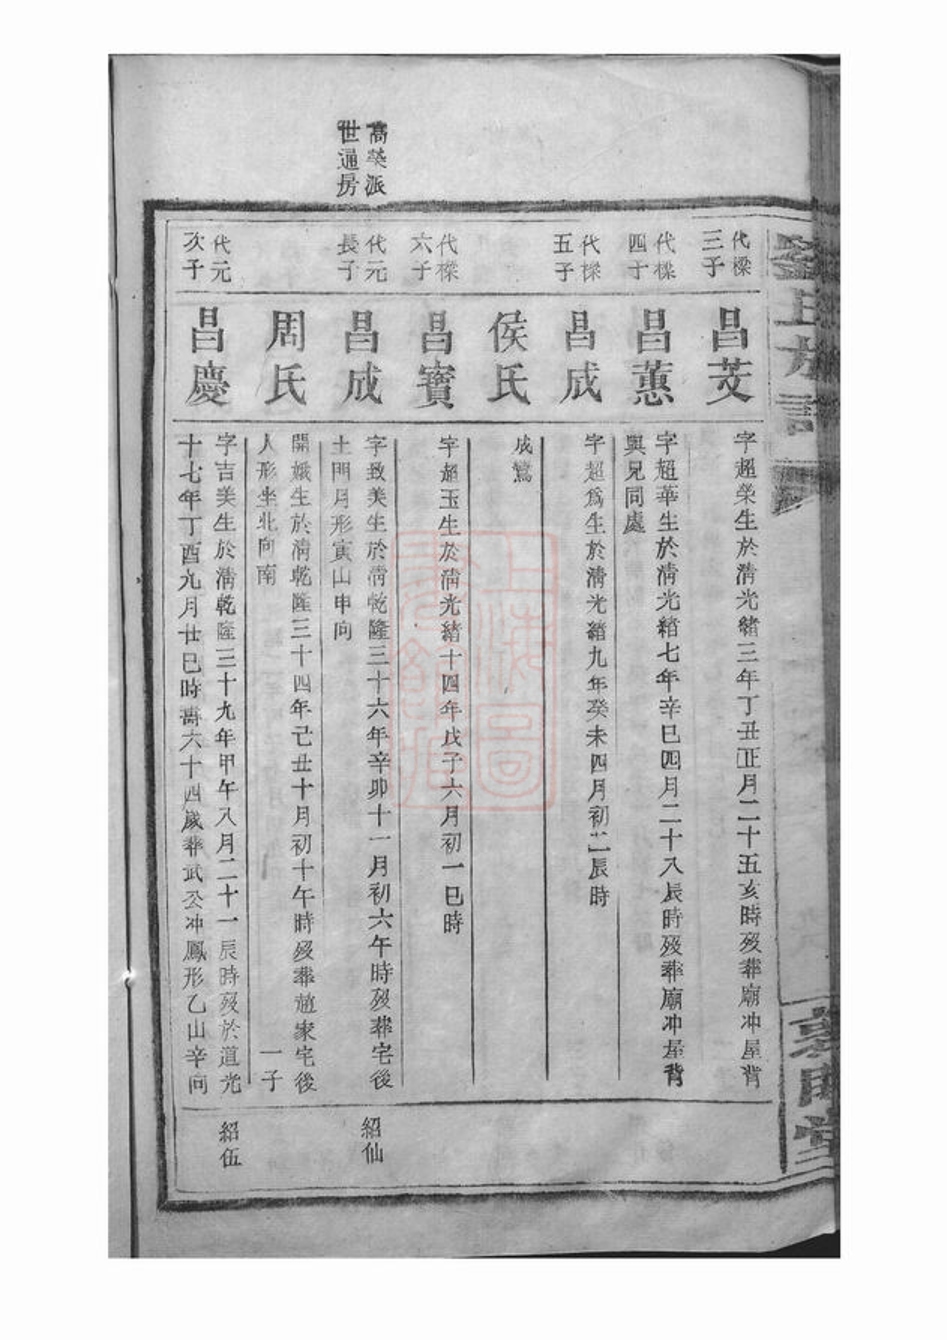 代樑三子
昌芰
字超榮生於清光緒三年丁丑正月二十五亥時歿葬廟冲屋背
代樑四子
昌蕙
字超華生於清光緒七年辛巳四月二十八辰時歿葬廟冲屋背
與兄同處
代樑五子
昌成
字超爲生於清光緒九年癸未四月初二辰時
侯氏
成鸞
代樑六子
昌寶
字超玉生於清光緒十四年戊子六月初一巳時
高榮派
世邇房
代元長子
昌成
字致美生於清乾隆三十六年辛卯十一月初六午時歿葬宅後
土門月形寅山申向
紹仙
周氏
開娥生於清乾隆三十四年己丑十月初十午時歿葬趙家宅後
人形坐北向南
一子
代元次子
昌慶
字吉美生於清乾隆三十九年甲午八月二十一辰時歿於道光
十七年丁酉九月廿巳時壽六十四歲葬武公冲鳳形乙山辛向
紹伍